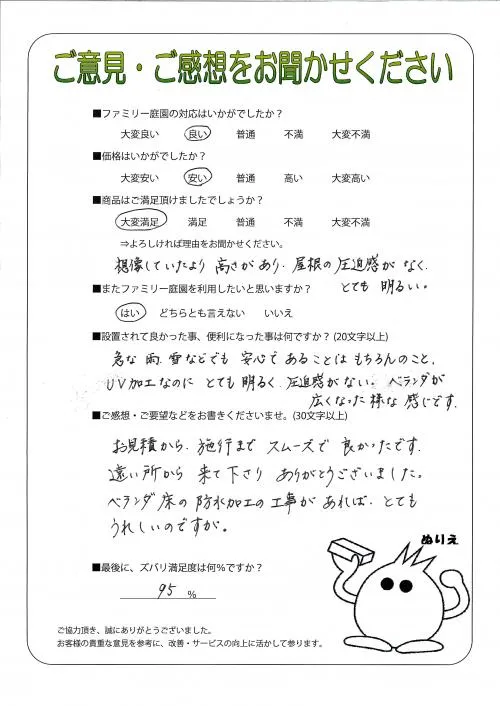 ご意見・ご感想をお聞かせください
■ファミリー庭園の対応はいかがでしたか？
大変良い 良い 普通 不満 大変不満
■価格はいかがでしたか？
大変安い 安い 普通 高い 大変高い
■商品はご満足頂けましたでしょうか？
大変満足 満足 普通 不満 大変不満
⇒よろしければ理由をお聞かせください。
想像していたより 高さがあり、屋根の圧迫感がなく、
とても 明るい。
■またファミリー庭園を利用したいと思いますか？
はい どちらとも言えない いいえ
■設置されて良かった事、便利になった事は何ですか？(20文字以上)
急な 雨、雪などでも 安心で あることは もちろんのこと、
UV加工なのに とても 明るく、圧迫感がない。 ベランダが
広くなった 様な 感じです。
■ご感想・ご要望などをお書きくださいませ。(30文字以上)
お見積から、施行まで スムーズで 良かったです。
遠い所から 来て下さり ありがとうございました。
ベランダ床の 防水加工の工事が あれば、とても
うれしいのですが。
ぬりえ
■最後に、ズバリ満足度は何％ですか？
95 %
ご協力頂き、誠にありがとうございました。
お客様の貴重な意見を参考に、改善・サービスの向上に活かして参ります。